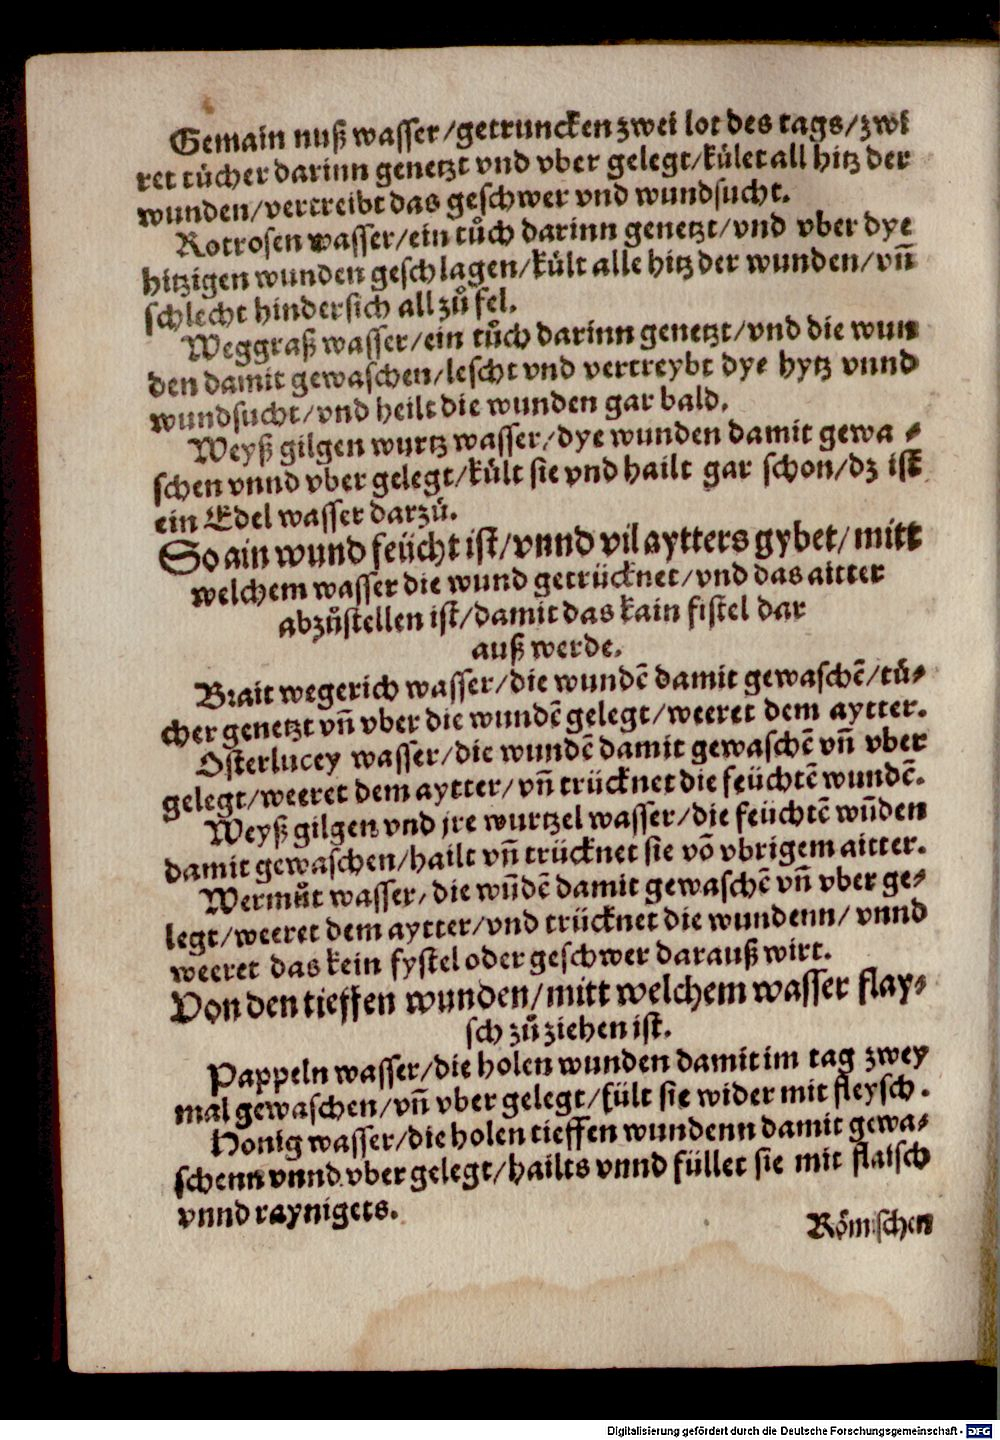 Gemain nuß wasser/getruncken zwei lot des tags/zwi
ret tücher darinn genetzt vnd vber gelegt/kület all hitz der
wunden/vertreibt das geschwer vnd wundsucht.
Rotrosen wasser/ein tůch darinn genetzt/vnd vber dye
hitzigen wunden geschlagen/kült alle hitz der wunden/vñ
schlecht hindersich all zůfel.
Weggraß wasser/ein tůch darinn genetzt/vnd die wun
den damit gewaschen/lescht vnd vertreybt dye hytz vnnd
wundsucht/vnd heilt die wunden gar bald.
Weyß gilgen wurtz wasser/dye wunden damit gewa⸗
schen vnnd vber gelegt/kült sie vnd hailt gar schon/dz ist
ein Edel wasser darzů.
So ain wund feücht ist/vnnd vil aytters gybet/mitt
welchem wasser die wund getrücknet/vnd das aitter
abzůstellen ist/damit das kain fistel dar
auß werde.
Brait wegerich wasser/die wundẽ damit gewaschẽ/tü⸗
cher genetzt vñ vber die wundẽ gelegt/weeret dem aytter.
Osterlucey wasser/die wundẽ damit gewaschẽ vñ vber
gelegt/weeret dem aytter/vñ trücknet die feüchtẽ wundẽ.
Weyß gilgen vnd jre wurtzel wasser/die feüchtẽ wũden
damit gewaschen/hailt vñ trücknet sie võ vbrigem aitter.
Wermůt wasser/die wũdẽ damit gewaschẽ vñ vber ge⸗
legt/weeret dem aytter/vnd trücknet die wundenn/vnnd
weeret das kein fystel oder geschwer darauß wirt.
Von den tieffen wunden/mitt welchem wasser flay⸗
sch zů ziehen ist.
Pappeln wasser/die holen wunden damit im tag zwey
mal gewaschen/vñ vber gelegt/fült sie wider mit fleysch.
Honig wasser/die holen tieffen wundenn damit gewa⸗
schenn vnnd vber gelegt/hailts vnnd füllet sie mit flaisch
vnnd raynigets.
Römischen
Digitalisierung gefördert durch die Deutsche Forschungsgemeinschaft - DFG